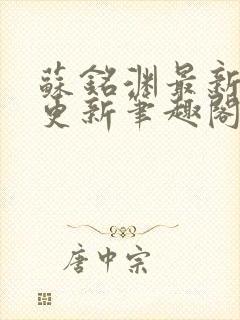 蘇銘淵最新
更新筆趣閣
唐中宗